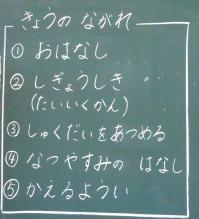 きょうの ながれ
① おはなし
② しぎょうしき
(たいいくかん)
③ しゅくだいをあつめる
④ なつやすみの はなし
⑤ かえるようい